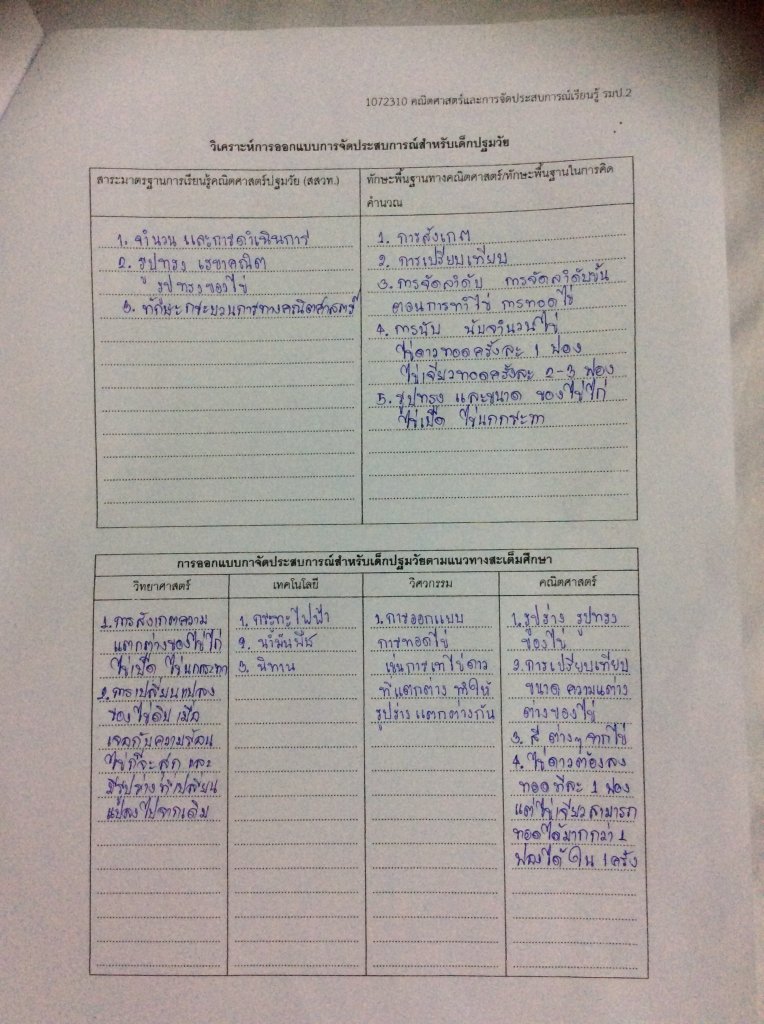 1072310 คณิตศาสตร์และการจัดประสบการณ์เรียนรู้ รมป.2
วิเคราะห์การออกแบบการจัดประสบการณ์สำหรับเด็กปฐมวัย
สาระมาตรฐานการเรียนรู้คณิตศาสตร์ปฐมวัย (สสวท.)
1. จำนวน และการดำเนินการ
2. รูปทรง เรขาคณิต
รูปทรงของไข่
3. ทักษะกระบวนการทางคณิตศาสตร์
ทักษะพื้นฐานทางคณิตศาสตร์/ทักษะพื้นฐานในการคิด
คำนวณ
1. การสังเกต
2. การเปรียบเทียบ
3. การจัดลำดับ การจัดลำดับขั้น
ตอนการทำไข่ การทอดไข่
4. การนับ นับจำนวนไข่
ไข่ดาวทอดครั้งละ 1 ฟอง
ไข่เจียวทอดครั้งละ 2-3 ฟอง
5. รูปทรง และขนาด ของไข่ไก่
ไข่เป็ด ไข่นกกระทา
การออกแบบกาจัดประสบการณ์สำหรับเด็กปฐมวัยตามแนวทางสะเต็มศึกษา
วิทยาศาสตร์
1. การสังเกตความ
แตกต่างของไข่ไก่
ไข่เป็ด ไข่นกกระทา
2. การเปลี่ยนแปลง
ของไข่ดิบ เมื่อ
เจอกับความร้อน
ไข่ก็จะสุก และ
มีรูปร่างที่เปลี่ยน
แปลงไปจากเดิม
เทคโนโลยี
1. กระทะไฟฟ้า
2. น้ำมันพืช
3. นิทาน
วิศวกรรม
1. การออกแบบ
การทอดไข่
เช่นการเทไข่ดาว
ที่แตกต่าง ทำให้
รูปร่างแตกต่างกัน
คณิตศาสตร์
1. รูปร่าง รูปทรง
ของไข่
2. การเปรียบเทียบ
ขนาด ความแต่าง
ต่างของไข่
3. สี ต่างๆ จากไข่
4. ไข่ดาวต้องลง
ทอดทีละ 1 ฟอง
แต่ไข่เจียวสามารถ
ทอดได้มากกว่า 1
ฟองได้ ใน 1 ครั้ง